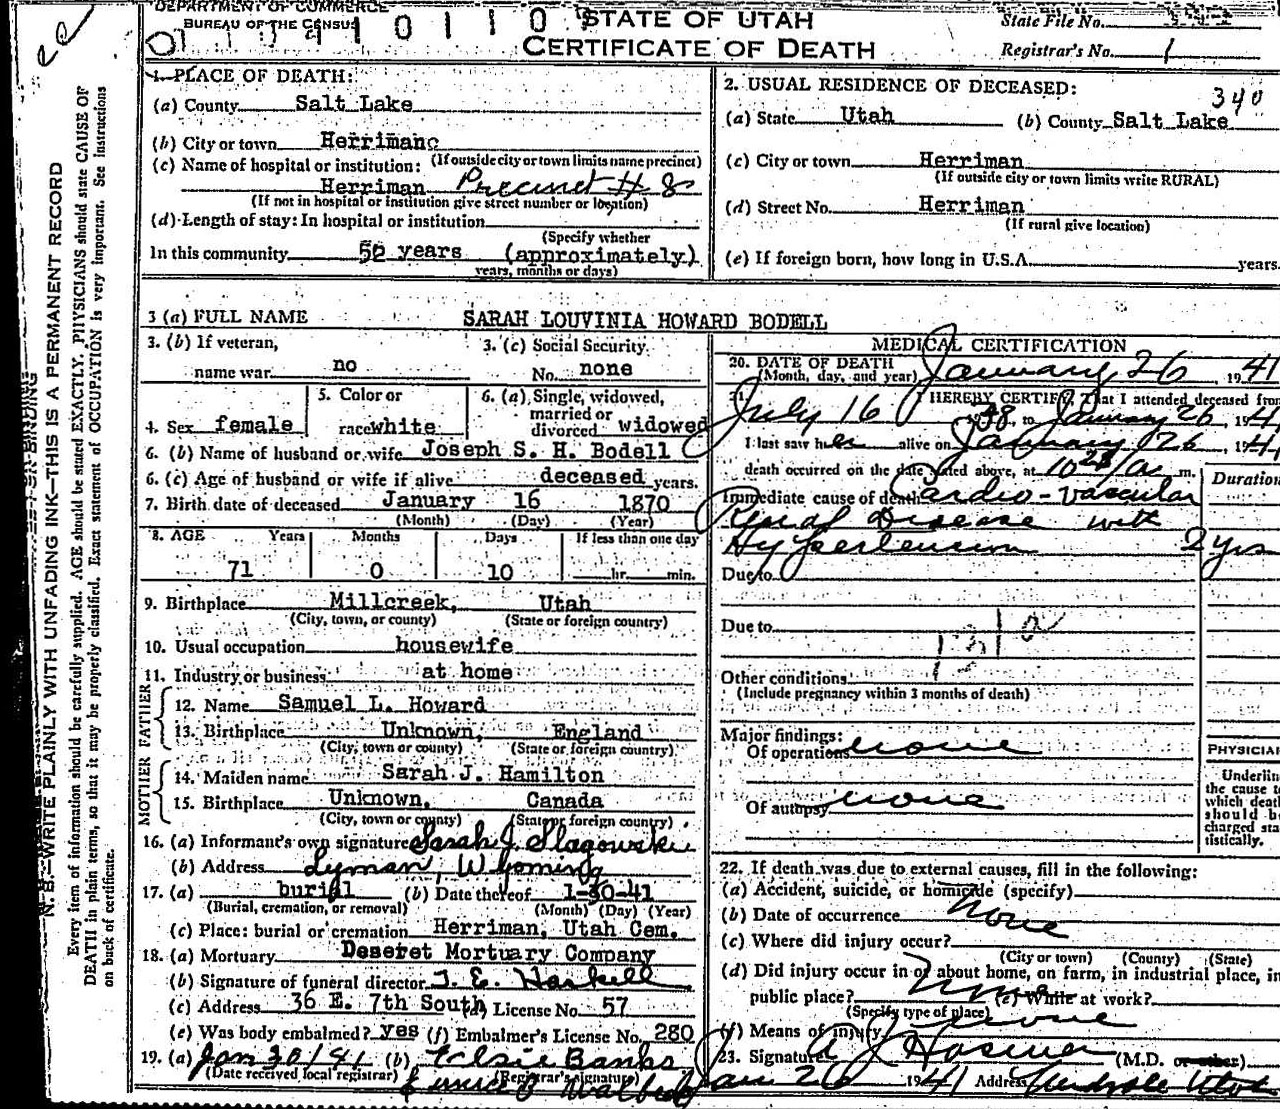 DEPARTMENT OF COMMERCE
BUREAU OF THE CENSUS
STATE OF UTAH
CERTIFICATE OF DEATH
State File No.
Registrar's No. 1
1. PLACE OF DEATH:
(a) County Salt Lake
(b) City or town Herriman
(If outside city or town limits name precinct)
(c) Name of hospital or institution:
Herriman Precinct # 8
(If not in hospital or institution give street number or location)
(d) Length of stay: In hospital or institution
(Specify whether
In this community 52 years (approximately)
years, months or days)
2. USUAL RESIDENCE OF DECEASED:
340
(a) State Utah (b) County Salt Lake
(c) City or town Herriman
(If outside city or town limits write RURAL)
(d) Street No. Herriman
(If rural give location)
(e) If foreign born, how long in U.S.A. years.
3 (a) FULL NAME SARAH LOUVINIA HOWARD BODELL
3. (b) If veteran,
name war no
3. (c) Social Security
No. none
4. Sex female
5. Color or
race white
6. (a) Single, widowed,
married or
divorced widowed
6. (b) Name of husband or wife Joseph S. H. Bodell
6. (c) Age of husband or wife if alive deceased years.
7. Birth date of deceased January 16 1870
(Month) (Day) (Year)
8. AGE Years Months Days If less than one day
71 0 10 hr. min.
9. Birthplace Millcreek, Utah
(City, town, or county) (State or foreign country)
10. Usual occupation housewife
11. Industry or business at home
FATHER
12. Name Samuel L. Howard
13. Birthplace Unknown, England
(City, town or county) (State or foreign country)
MOTHER
14. Maiden name Sarah J. Hamilton
15. Birthplace Unknown, Canada
(City, town or county) (State or foreign country)
16. (a) Informant's own signature Sarah J. Slagowski
(b) Address Lyman, Wyoming
17. (a) burial (b) Date thereof 1-30-41
(Burial, cremation, or removal) (Month) (Day) (Year)
(c) Place: burial or cremation Herriman, Utah Cem.
18. (a) Mortuary Deseret Mortuary Company
(b) Signature of funeral director J. E. Haskell
(c) Address 36 E. 7th South (d) License No. 57
(e) Was body embalmed? yes (f) Embalmer's License No. 280
19. (a) Jan 30/41 (b) Elsie Banks
(Date received local registrar) (Registrar's signature)
MEDICAL CERTIFICATION
20. DATE OF DEATH
(Month, day, and year) January 26, 1941
21. I HEREBY CERTIFY, That I attended deceased from
July 16 1938, to January 26, 194
I last saw her alive on January 26, 194
death occurred on the date stated above, at 10 a m.
Duration
Immediate cause of death Cardio-vascular
Renal Disease with
Hypertension 2 yrs
Due to
Due to
131 a
Other conditions
(Include pregnancy within 3 months of death)
Major findings:
Of operations none
Of autopsy none
PHYSICIAN
Underline
the cause to
which death
should be
charged sta-
tistically.
22. If death was due to external causes, fill in the following:
(a) Accident, suicide, or homicide (specify)
(b) Date of occurrence none
(c) Where did injury occur?
(City or town) (County) (State)
(d) Did injury occur in or about home, on farm, in industrial place, in
public place? none (e) While at work?
(Specify type of place)
(f) Means of injury none
23. Signature A J Hosmer (M.D. or other)
Jan 26 1941 Address Midvale Utah
N. B.—WRITE PLAINLY WITH UNFADING INK—THIS IS A PERMANENT RECORD
Every item of information should be carefully supplied. AGE should be stated EXACTLY. PHYSICIANS should state CAUSE OF
DEATH in plain terms, so that it may be properly classified. Exact statement of OCCUPATION is very important. See instructions
on back of certificate.